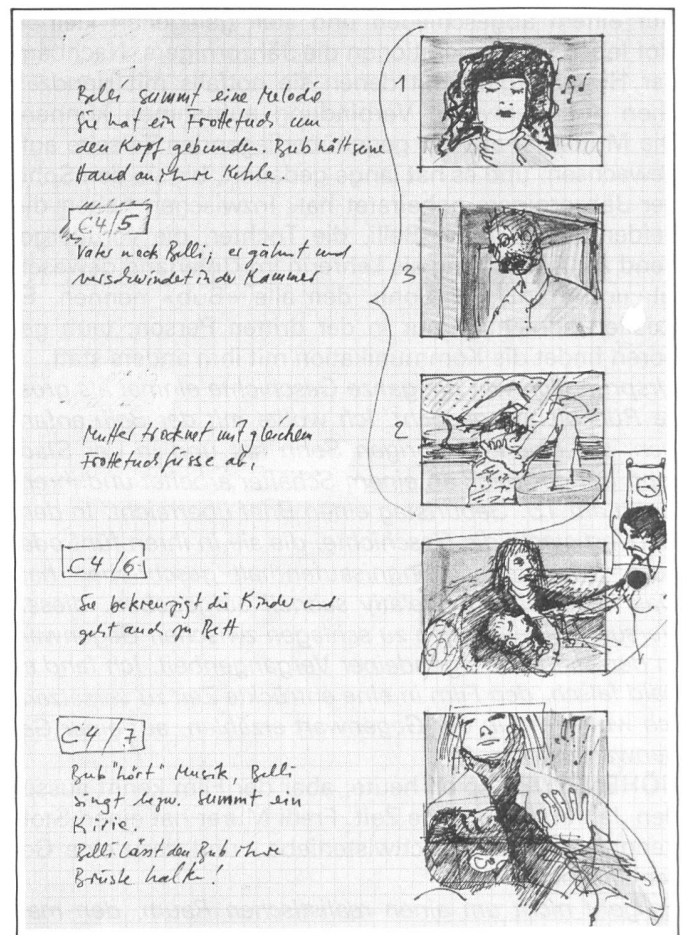 Belli summt eine Melodie
Sie hat ein Frottetuch um
den Kopf gebunden. Bub hält seine
Hand an ihre Kehle.
1
C4/5
Vater nach Belli; er gähnt und
verschwindet in der Kammer
3
Mutter trocknet mit gleichen
Frottetuch füsse ab,
2
C4/6
Sie bekreuzigt die Kinder und
geht auch zu Bett
C4/7
Bub "hört" Musik, Belli
singt bezw. summt ein
Kirie.
Belli lässt den Bub ihre
Brüste halten!